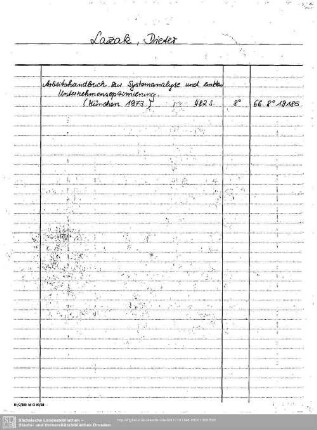 Lazak, Dieter
Arbeitshandbuch zur Systemanalyse und
Unternehmensoptimierung.
(München 1973) 482 S. 8° 66. 8° 19185
Sächsische Landesbibliothek -
Staats- und Universitätsbibliothek Dresden